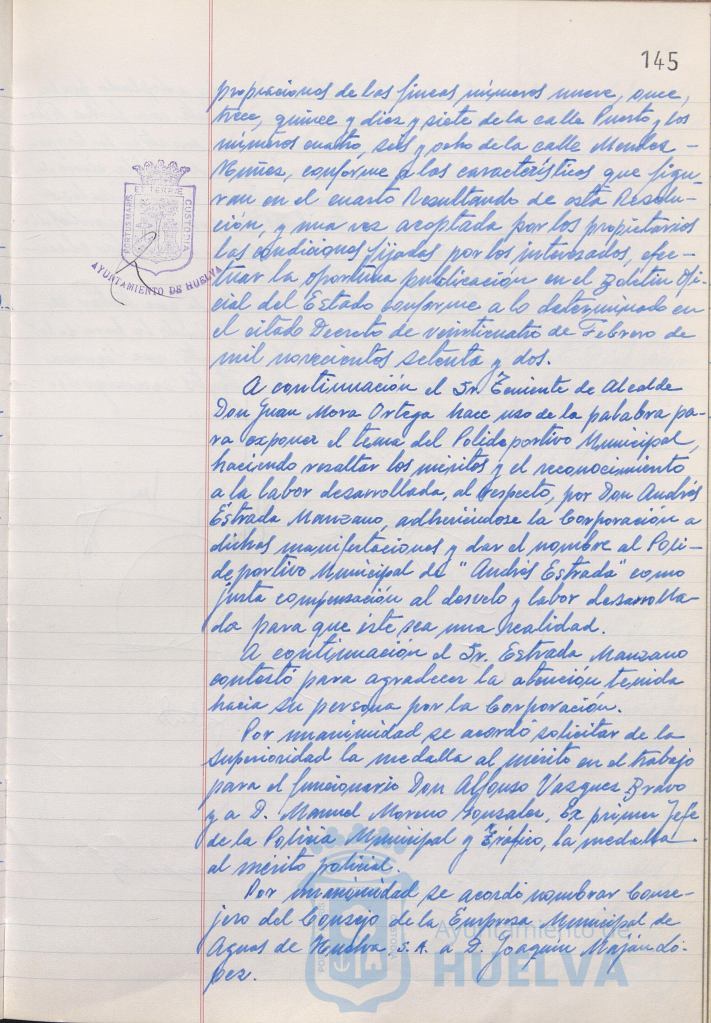 145
propiaciones de las fincas números nueve, once,
trece, quince y diez y siete de la calle Puerto y los
números cuatro, seis y ocho de la calle Mendez-
Nuñez, conforme a las características que figu-
ran en el cuarto Resultando de esta Resolu-
ción, y una vez aceptada por los propietarios
las condiciones fijadas por los interesados, efec-
tuar la oportuna publicación en el Boletín Ofi-
cial del Estado conforme a lo determinado en
el citado Decreto de veinticuatro de Febrero de
mil novecientos setenta y dos.
A continuación el Sr. Teniente de Alcalde
Don Juan Mora Ortega hace uso de la palabra pa-
ra exponer el tema del Polideportivo Municipal,
haciendo resaltar los méritos y el reconocimiento
a la labor desarrollada, al respecto, por Don Andrés
Estrada Manzano, adheriéndose la Corporación a
dichas manifestaciones y dar el nombre al Poli-
deportivo Municipal de "Andrés Estrada" como
justa compensación al desvelo y labor desarrolla-
da para que éste sea una realidad.
A continuación el Sr. Estrada Manzano
contestó para agradecer la atención tenida
hacia su persona por la Corporación.
Por unanimidad se acordó solicitar de la
superioridad la medalla al mérito en el trabajo
para el funcionario Don Alfonso Vazquez Bravo
y a D. Manuel Moreno Gonzalez, Ex primer Jefe
de la Policia Municipal y Tráfico, la medalla
al mérito policial.
Por unanimidad se acordó nombrar Conse-
jero del Consejo de la Empresa Municipal de
Aguas de Huelva, S.A. a D. Joaquín Maján Ló-
pez.
PORTUS MARIS ET TERRÆ CUSTODIA
AYUNTAMIENTO DE HUELVA
Ayuntamiento de
HUELVA